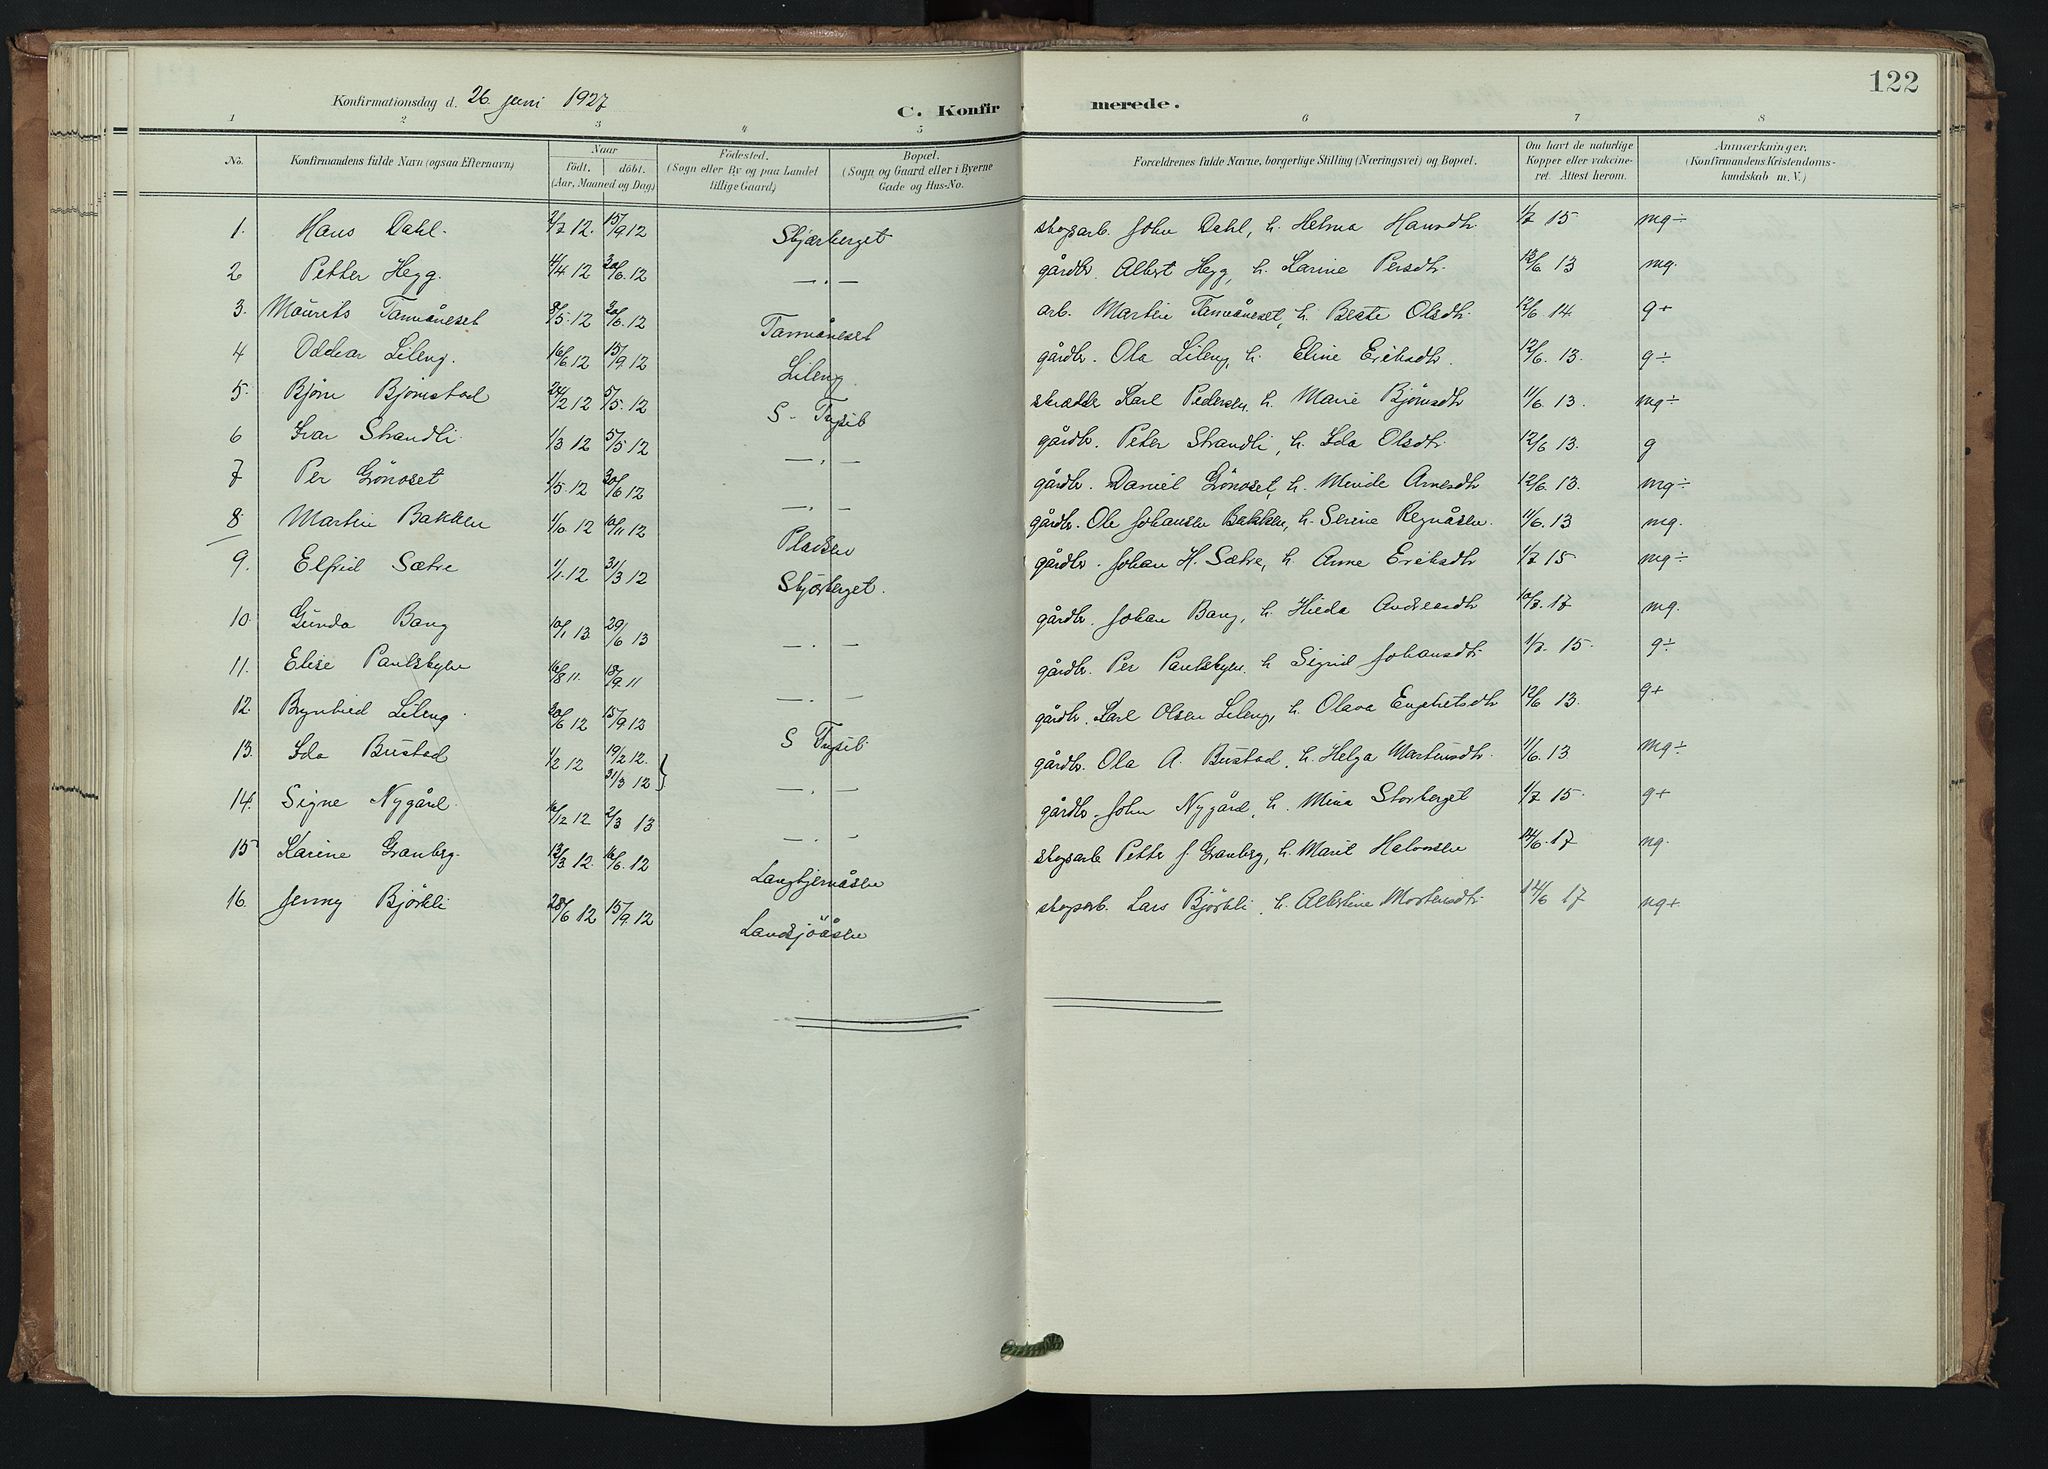 122
Konfirmationsdag d. 26 juni 1927
C. Konfirmerede.
1 2 3 4 5 6 7 8
No. Konfirmandens fulde Navn (ogsaa Efternavn) Naar födt. döbt. (Aar, Maaned og Dag) Födested. (Sogn eller By og paa Landet tillige Gaard) Bopæl. (Sogn og Gaard eller i Byerne Gade og Hus-No. Forældrenes fulde Navne, borgerlige Stilling (Næringsvei) og Bopæl. Om havt de naturlige Kopper eller vakcineret. Attest herom. Anmærkninger. (Konfirmandens Kristendomskundskab m. V.)
1. Hans Dahl. 2/7 12. 15/9 12 Skjærberget skogsarb. John Dahl, h. Helma Hansdtr. 1/7 15 mg÷
2 Petter Hegg. 4/4 12 30/6. 12 — " — gårdbr. Albert Hegg, h. Karine Persdtr. 12/6 13 mg.
3. Maurits Tannåneset 8/5. 12 30/6. 12 Tannåneset arb. Martin Tannåneset, h. Beate Olsdtr. 12/6 14 g+
4 Oddvar Lileng. 16/6 12 15/9 12 Lileng. gårdbr. Ola Lileng, h. Eline Eriksdtr. 12/6. 13. g÷
5. Bjørn Bjørnstad 24/2 12 5/5. 12 S. Trysil skrædder Karl Pedersen, h. Marie Bjørnsdtr 11/6. 13. mg÷
6 Ivar Strandli 1/3 12 5/5 12 — " — gårdbr. Peter Strandli, h. Ida Olsdtr. 12/6 13. g
7 Per Grönoset 1/5. 12 30/6 12 — " — gårdbr. Daniel Grönoset, h. Minde Arnesdtr 12/6. 13. mg÷
8 Martin Bakken 1/10 12 10/11 12 Pladsen gårdbr. Ole Johansen Bakken, h. Serine Regnåsen. 11/6. 13 mg.
9. Elfrid Sætre 1/1. 12 31/3 12 Skjærberget. gårdbr. Johan H. Sætre, h. Anne Eriksdtr 1/7 15 mg÷
10. Gunda Bang 10/1 13 29/6 13 — " — gårdbr. Johan Bang, h. Hilda Andreasdtr 10/7. 17 mg.
11. Elise Paulsbyen 16/8 11. 18/9. 11 — " — gårdbr. Per Paulsbyen, h Sigrid Johansdtr. 1/7. 15. g÷
12. Brynhild Lileng. 20/6 12 15/9 12 S Trysil gårdbr. Karl Olsen Lileng, h. Olava Engebretsdtr 12/6 13. g+
13. Ida Bustad 1/2 12 19/2 12. 31/3 12 } — " — gårdbr. Ola A. Bustad, h. Helga Martinsdtr. 11/6. 13 mg÷
14. Signe Nygård. 16/12 12 2/3 13 — " — gårdbr. John Nygård, h. Mina Storberget 1/7 15. g+
15 Karine Granberg. 13/3 12. 16/6. 12 skogsarb Petter J. Granberg, h. Marit Halvorsen 14/6. 17 mg.
16. Jenny Björkli 28/6 12 15/9 12 Landsjöåsen skogsarb. Lars Björkli, h. Albertine Mortensdtr. 14/6 17 mg+